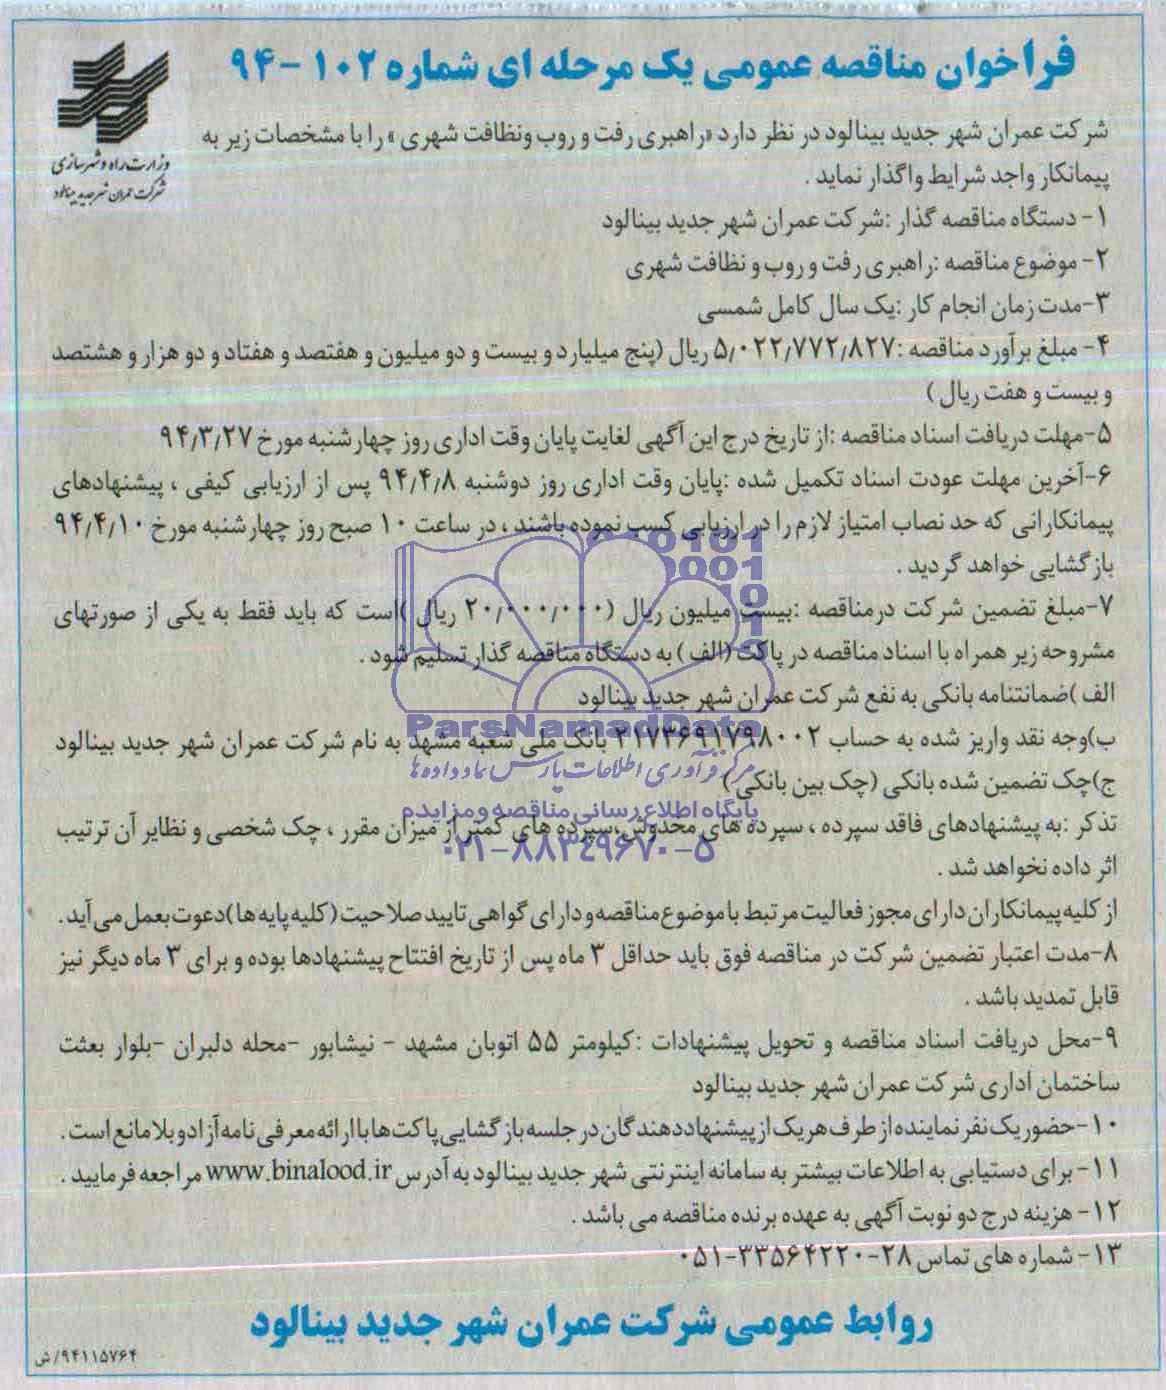 فراخوان مناقصه عمومی یک مرحله ای شماره ۱۰۲ -۹۴
وزارت راه و شهرسازی
شرکت عمران شهر جدید بینالود
شرکت عمران شهر جدید بینالود در نظر دارد «راهبری رفت و روب ونظافت شهری » را با مشخصات زیر به
پیمانکار واجد شرایط واگذار نماید .
۱- دستگاه مناقصه گذار :شرکت عمران شهر جدید بینالود
۲- موضوع مناقصه :راهبری رفت و روب و نظافت شهری
۳-مدت زمان انجام کار :یک سال کامل شمسی
۴- مبلغ برآورد مناقصه :۵٫۰۲۲٫۷۷۲٫۸۲۷ ریال (پنج میلیارد و بیست و دو میلیون و هفتصد و هفتاد و دو هزار و هشتصد
و بیست و هفت ریال )
۵-مهلت دریافت اسناد مناقصه :از تاریخ درج این آگهی لغایت پایان وقت اداری روز چهارشنبه مورخ ۹۴٫۳٫۲۷
۶-آخرین مهلت عودت اسناد تکمیل شده :پایان وقت اداری روز دوشنبه ۹۴٫۴٫۸ پس از ارزیابی کیفی ، پیشنهادهای
پیمانکارانی که حد نصاب امتیاز لازم را در ارزیابی کسب نموده باشند ، در ساعت ۱۰ صبح روز چهارشنبه مورخ ۹۴٫۴٫۱۰
بازگشایی خواهد گردید .
۷-مبلغ تضمین شرکت درمناقصه :بیست میلیون ریال (۲۰٫۰۰۰٫۰۰۰ ریال )است که باید فقط به یکی از صورتهای
مشروحه زیر همراه با اسناد مناقصه در پاکت (الف ) به دستگاه مناقصه گذار تسلیم شود .
الف )ضمانتنامه بانکی به نفع شرکت عمران شهر جدید بینالود
ParsNamadData
ب)وجه نقد واریز شده به حساب ۲۱۷۳۶۹۱۷۹۸۰۰۲ بانک ملی شعبه مشهد به نام شرکت عمران شهر جدید بینالود
مرکز فرآوری اطلاعات پارس نماد داده ها
ج)چک تضمین شده بانکی (چک بین بانکی )
پایگاه اطلاع رسانی مناقصه و مزایده
تذکر :به پیشنهادهای فاقد سپرده ، سپرده های مخدوش،سپرده های کمتر از میزان مقرر ، چک شخصی و نظایر آن ترتیب
۰۲۱-۸۸۳۴۹۶۷۰-۵
اثر داده نخواهد شد .
از کلیه پیمانکاران دارای مجوز فعالیت مرتبط با موضوع مناقصه و دارای گواهی تایید صلاحیت (کلیه پایه ها)دعوت بعمل می آید.
۸-مدت اعتبار تضمین شرکت در مناقصه فوق باید حداقل ۳ ماه پس از تاریخ افتتاح پیشنهادها بوده و برای ۳ ماه دیگر نیز
قابل تمدید باشد .
۹-محل دریافت اسناد مناقصه و تحویل پیشنهادات :کیلومتر ۵۵ اتوبان مشهد - نیشابور -محله دلبران -بلوار بعثت
ساختمان اداری شرکت عمران شهر جدید بینالود
۱۰-حضور یک نفر نماینده از طرف هریک از پیشنهاددهندگان در جلسه بازگشایی پاکت ها با ارائه معرفی نامه آزاد و بلامانع است.
۱۱- برای دستیابی به اطلاعات بیشتر به سامانه اینترنتی شهر جدید بینالود به آدرس www.binalood.ir مراجعه فرمایید .
۱۲- هزینه درج دو نوبت آگهی به عهده برنده مناقصه می باشد .
۱۳- شماره های تماس ۲۸-۰۵۱-۳۳۵۶۴۲۲۰
روابط عمومی شرکت عمران شهر جدید بینالود
۹۴۱۱۵۷۶۴/ش